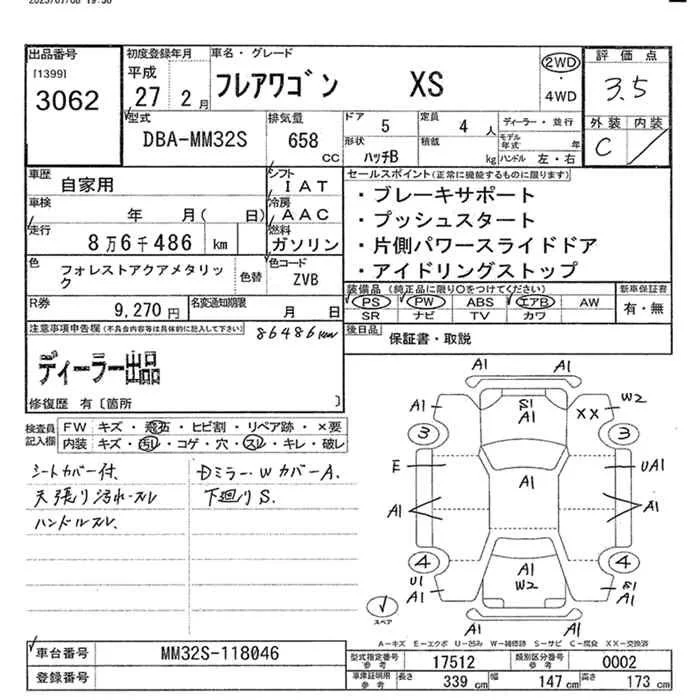 出品番号
[1399]
3062
初度登録年月
平成
27 2月
車名・グレード
フレアワゴン XS
2WD
・
4WD
評価点
3.5
外装 内装
C
型式
DBA-MM32S
排気量
658
CC
ドア 5
定員 4人
形状 ハッチB
積載 kg
ディーラー・並行
モデル年式 年
ハンドル 左・右
車歴 自家用
車検 年 月( 日)
走行 8万6千486 km
シフト IAT
冷房 AAC
燃料 ガソリン
色 フォレストアクアメタリック
色替
色コード ZVB
R券 9,270円
名変通知期限 月 日
セールスポイント(正常に機能するものに限ります)
・ブレーキサポート
・プッシュスタート
・片側パワースライドドア
・アイドリングストップ
装備品(純正品に限り○をつけてください)
PS PW ABS エアB AW
SR ナビ TV カワ
新車保証書
有・無
後日品 保証書・取説
注意事項申告欄(不具合内容等は具体的に記入して下さい)
86486km
ディーラー出品
修復歴 有〔箇所 〕
検査員記入欄
FW キズ・飛石・ヒビ割・リペア跡・×要
内装 キズ・汚レ・コゲ・穴・スレ・キレ・破レ
シートカバー付、
天張り汚れ・スレ
ハンドルスレ、
Dミラー・WカバーA、
下廻りS、
A1 A1
A1 S1 A1 XX W2
3 3
E A1 UA1
A1 A1
4 4
U1 A1 A1 W2 S1 A1
A1 A1
スペア
A-キズ E-エクボ U-凹み W-補修跡 S-サビ C-腐食 XX-交換済
車台番号 MM32S-118046
登録番号
型式指定番号 参考 17512
類別区分番号 参考 0002
車庫証明用 参考 長さ 339 cm 幅 147 cm 高さ 173 cm